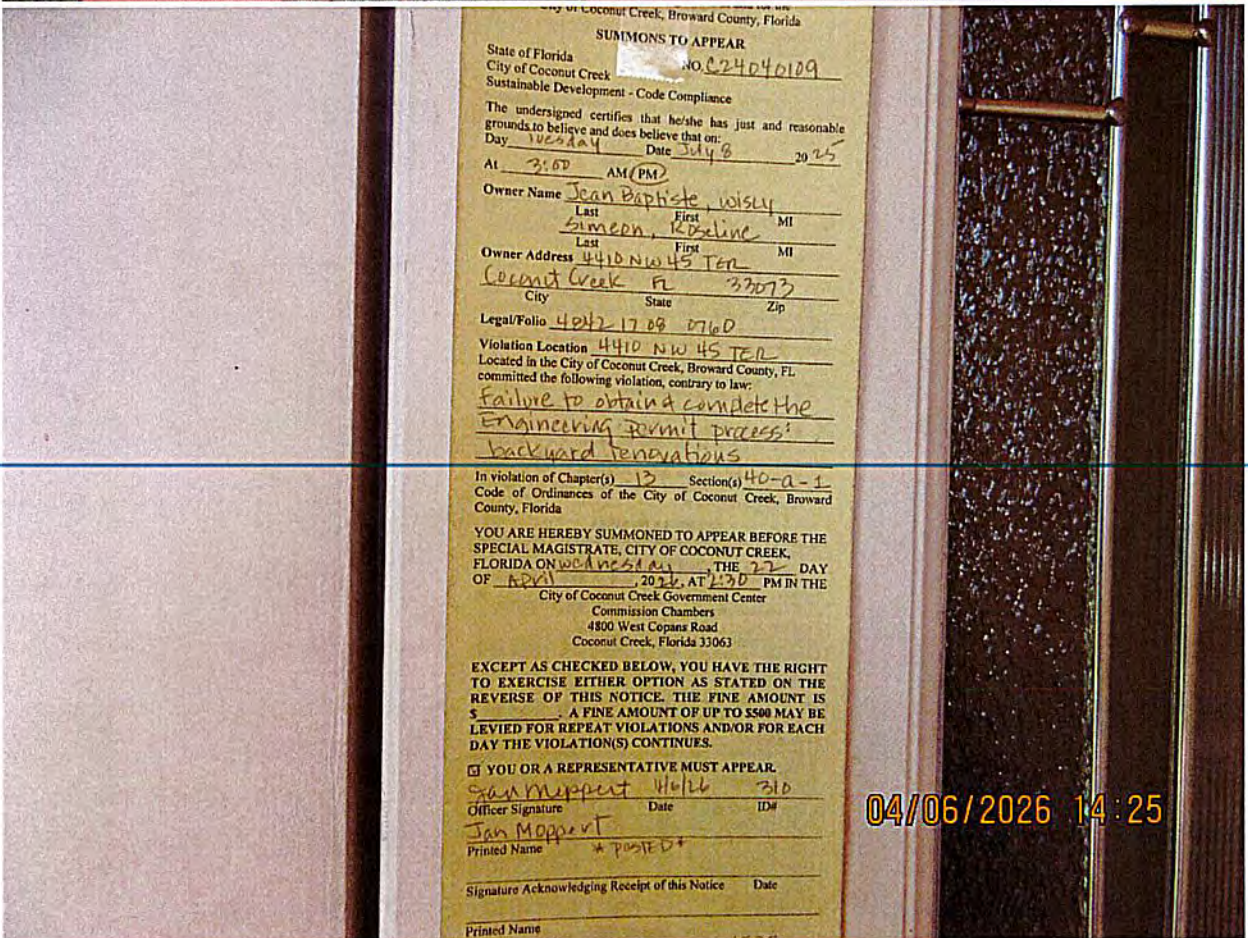 City of Coconut Creek, Broward County, Florida
SUMMONS TO APPEAR
State of Florida
City of Coconut Creek NO. C24040109
Sustainable Development - Code Compliance
The undersigned certifies that he/she has just and reasonable
grounds to believe and does believe that on:
Day Tuesday Date July 8 2025
At 3:00 AM PM
Owner Name Jean Baptiste, Wisly
Last First MI
Simeon, Roseline
Last First MI
Owner Address 4410 NW 45 TER
Coconut Creek FL 33073
City State Zip
Legal/Folio 4842 17 08 0760
Violation Location 4410 NW 45 TER
Located in the City of Coconut Creek, Broward County, FL
committed the following violation, contrary to law:
Failure to obtain & complete the
Engineering permit process:
backyard renovations
In violation of Chapter(s) 13 Section(s) 40-a-1
Code of Ordinances of the City of Coconut Creek, Broward
County, Florida
YOU ARE HEREBY SUMMONED TO APPEAR BEFORE THE
SPECIAL MAGISTRATE, CITY OF COCONUT CREEK,
FLORIDA ON Wednesday, THE 22 DAY
OF April, 2026, AT 2:30 PM IN THE
City of Coconut Creek Government Center
Commission Chambers
4800 West Copans Road
Coconut Creek, Florida 33063
EXCEPT AS CHECKED BELOW, YOU HAVE THE RIGHT
TO EXERCISE EITHER OPTION AS STATED ON THE
REVERSE OF THIS NOTICE. THE FINE AMOUNT IS
$ . A FINE AMOUNT OF UP TO $500 MAY BE
LEVIED FOR REPEAT VIOLATIONS AND/OR FOR EACH
DAY THE VIOLATION(S) CONTINUES.
YOU OR A REPRESENTATIVE MUST APPEAR.
Jan Moppert 4/6/26 310
Officer Signature Date ID#
Jan Moppert
Printed Name * POSTED *
Signature Acknowledging Receipt of this Notice Date
Printed Name
04/06/2026 14:25